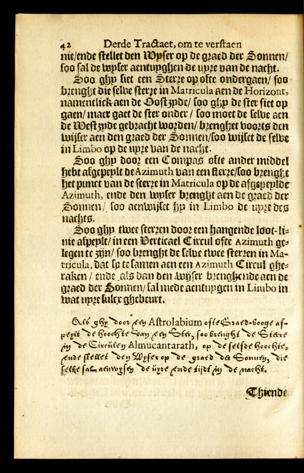 42 Derde Tractaet, om te verstaen
nie/ende stellet den Wyser op de graed der Sonnen/
soo sal de wyser aentuyghen de uyre van de nacht.
Soo ghy siet een Sterre op ofte ondergaen/ soo
brenght die selve sterre in Matricula aen de Horizont,
namentlick aen de Oostzyde/ soo ghy de ster siet op
gaen/ maer gaet de ster onder/ soo moet de selve aen
de Westzyde gebracht worden/ brenghet voorts den
wijser aen den graed der Sonnen/soo wijset de selve
in Limbo op de uyre van de nacht.
Soo ghy door een Compas ofte ander middel
hebt afgepeylt de Azimuth van een sterre/soo brenght
het punct van de sterre in Matricula op de afgepeylde
Azimuth, ende den wyser brenght aen de graed der
Sonnen/ soo aenwijset hy in Limbo de uyre des
nachts.
Soo ghy twee sterren door een hangende loot-li-
nie afpeylt/ in een Verticael Circul ofte Azimuth ge-
legen te zijn/ soo brenght de selve twee sterren in Ma-
tricula, dat sp te samen aen een Azimuth Circul ghe-
raken/ ende als dan den wijser brenghende aen de
graed der Sonnen/ sal mede aentuygen in Limbo in
wat uyre sulcx ghebeurt.
Als ghy door een Astrolabium ofte Graed-booge af-
peylt de hoochte van een Ster, soo brenght de Sterre
in de Circulen Almucantarath, op de selfde hoochte,
ende stellet den Wyser op de graed der Sonnen, die
selve sal aenwysen de uyre ende tijdt in de nacht.
Thiende